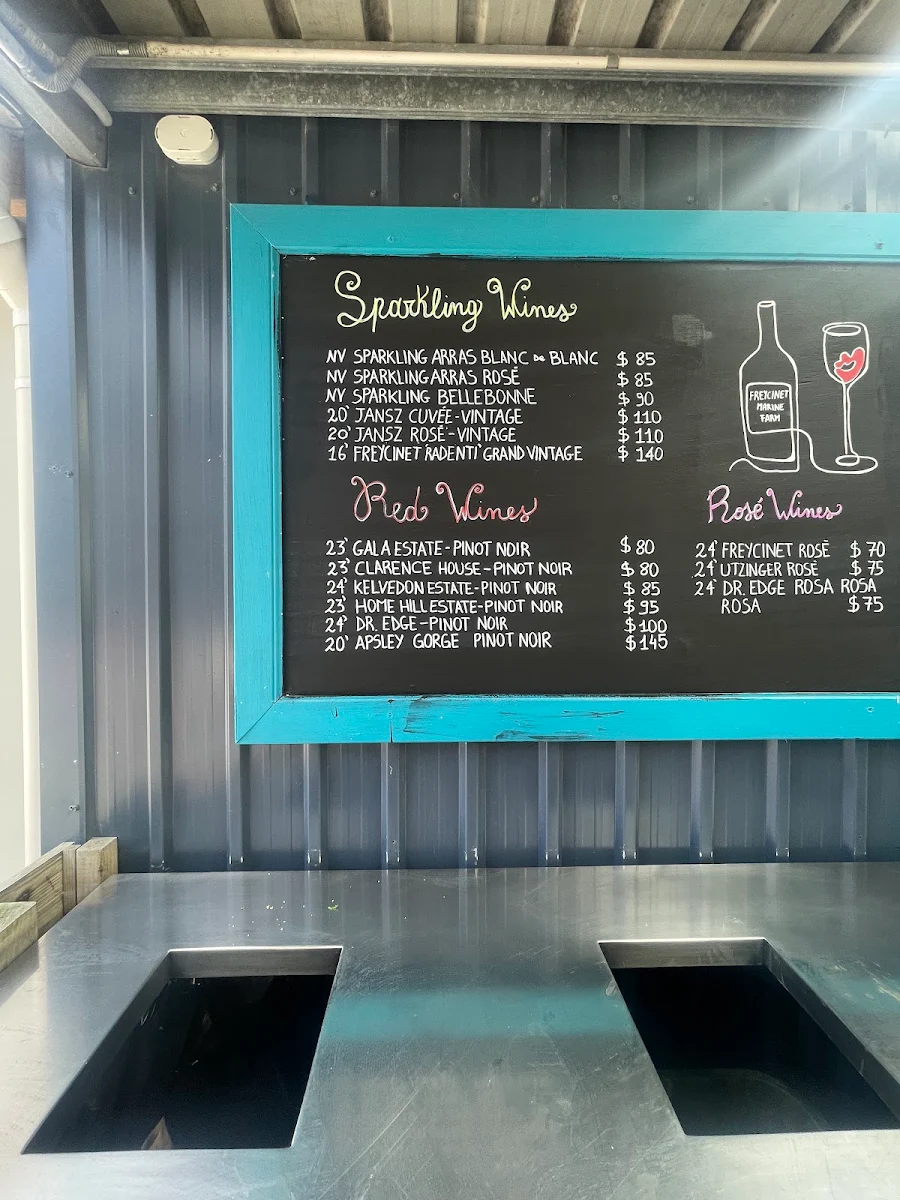 Sparkling Wines
NV SPARKLING ARRAS BLANC DE BLANC $ 85
NV SPARKLING ARRAS ROSÉ $ 85
NV SPARKLING BELLEBONNE $ 90
20' JANSZ CUVÉE - VINTAGE $ 110
20' JANSZ ROSÉ - VINTAGE $ 110
16' FREYCINET RADENTI GRAND VINTAGE $ 140
FREYCINET
MARINE
FARM
Red Wines
23' GALA ESTATE - PINOT NOIR $ 80
23' CLARENCE HOUSE - PINOT NOIR $ 80
24' KELVEDON ESTATE - PINOT NOIR $ 85
23' HOME HILL ESTATE - PINOT NOIR $ 95
24' DR. EDGE - PINOT NOIR $ 100
20' APSLEY GORGE PINOT NOIR $ 145
Rosé Wines
24' FREYCINET ROSÉ $ 70
24' UTZINGER ROSÉ $ 75
24' DR. EDGE ROSA ROSA
ROSA $ 75